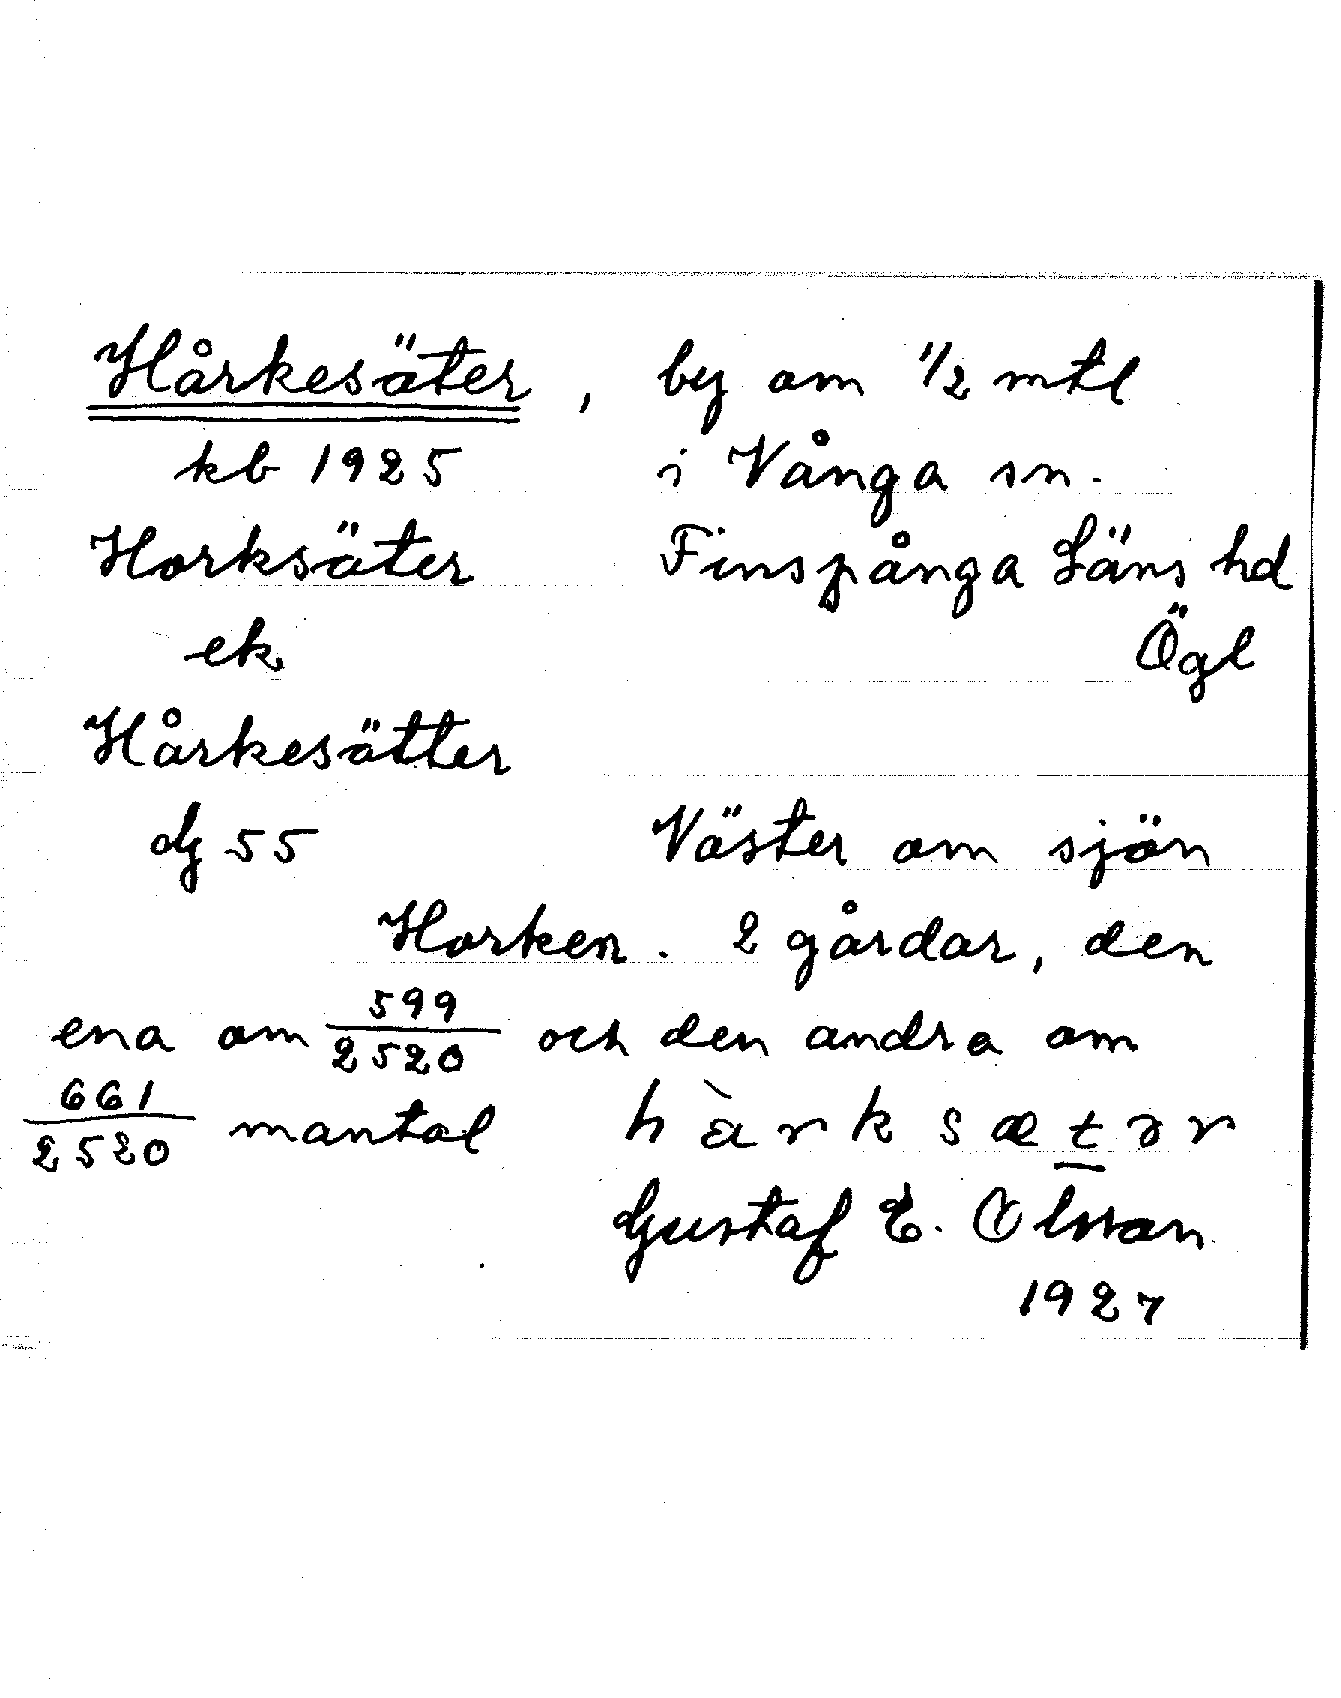 Hårkesäter, by om 1/2 mtl
kb 1925 i Vånga sn.
Horksäter Finspånga Läns hd
ek. Ögl
Hårkesätter
dj 55 Väster om sjön
Horken. 2 gårdar, den
ena om 599/2520 och den andra om
661/2520 mantal hàrksætər
Gustaf E. Olsson
1927